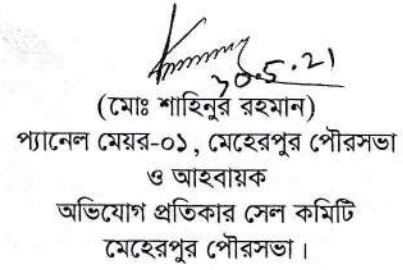 30.5.21
(মোঃ শাহিনুর রহমান)
প্যানেল মেয়র-০১, মেহেরপুর পৌরসভা
ও আহবায়ক
অভিযোগ প্রতিকার সেল কমিটি
মেহেরপুর পৌরসভা।